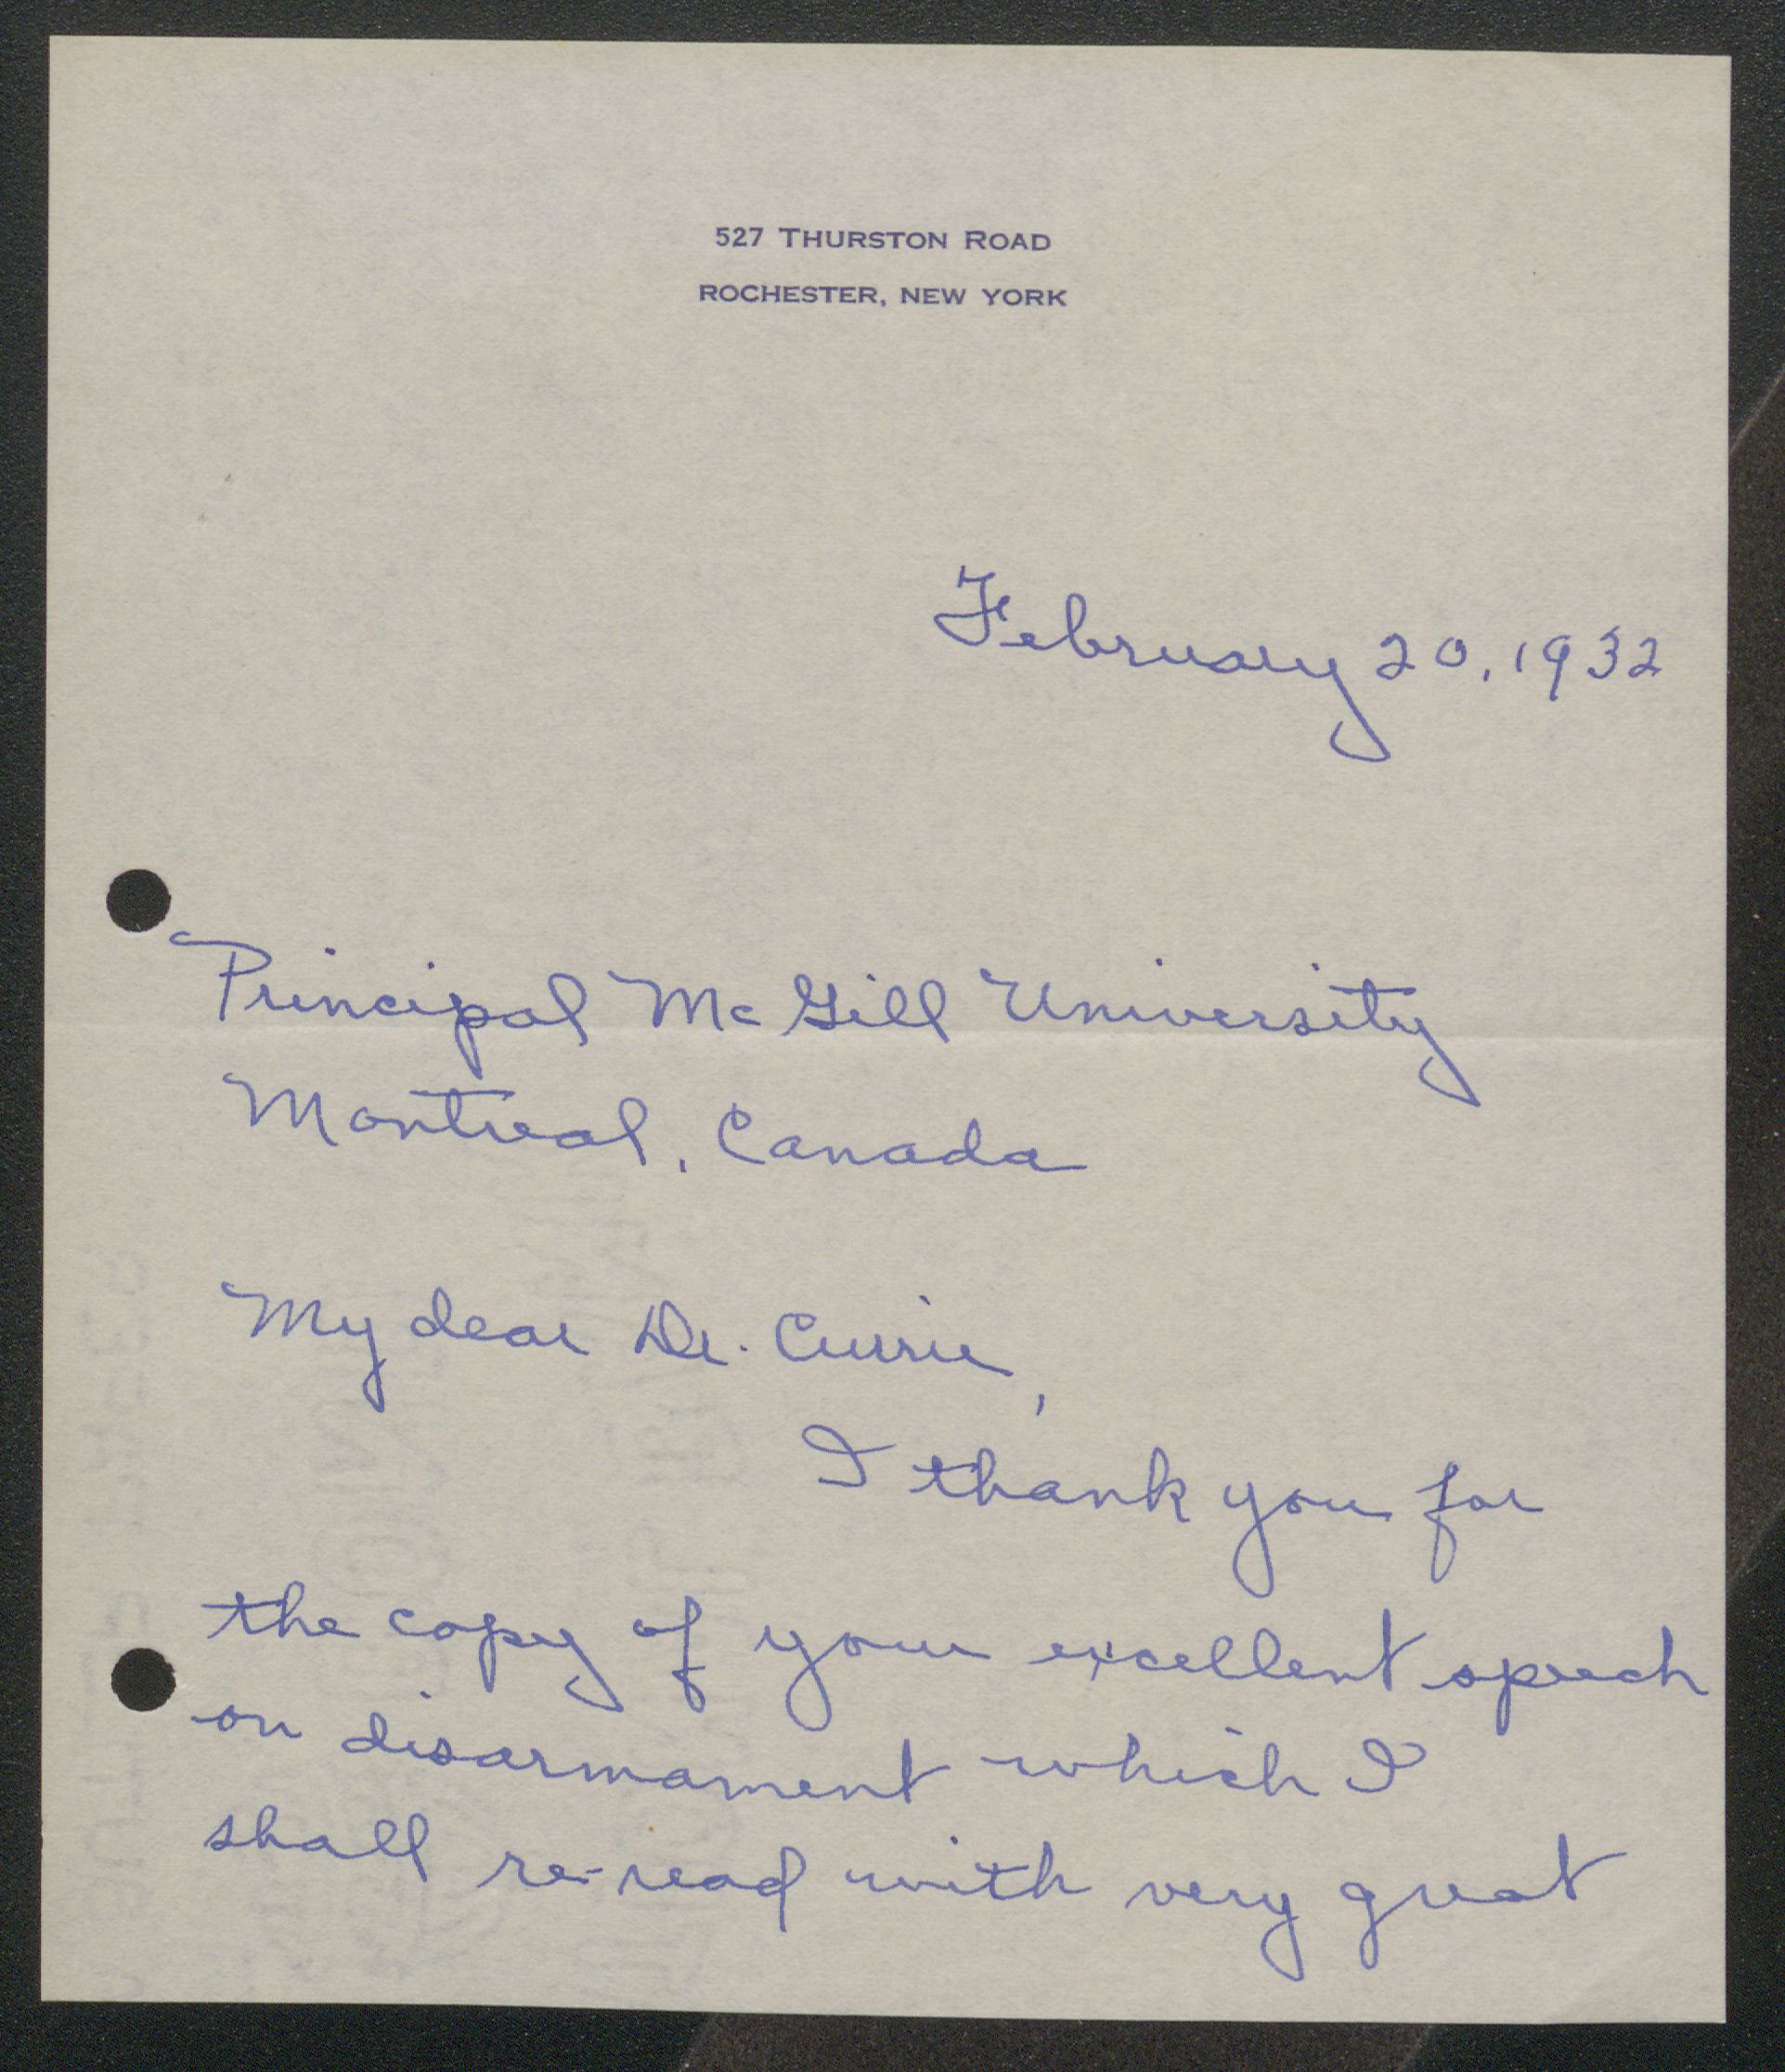 527 THURSTON ROAD
ROCHESTER, NEW YORK
February 20, 1932
Principal McGill University
Montreal, Canada
My dear Dr. Currie,
I thank you for
the copy of your excellent speech
on disarmament which I
shall re-read with very great